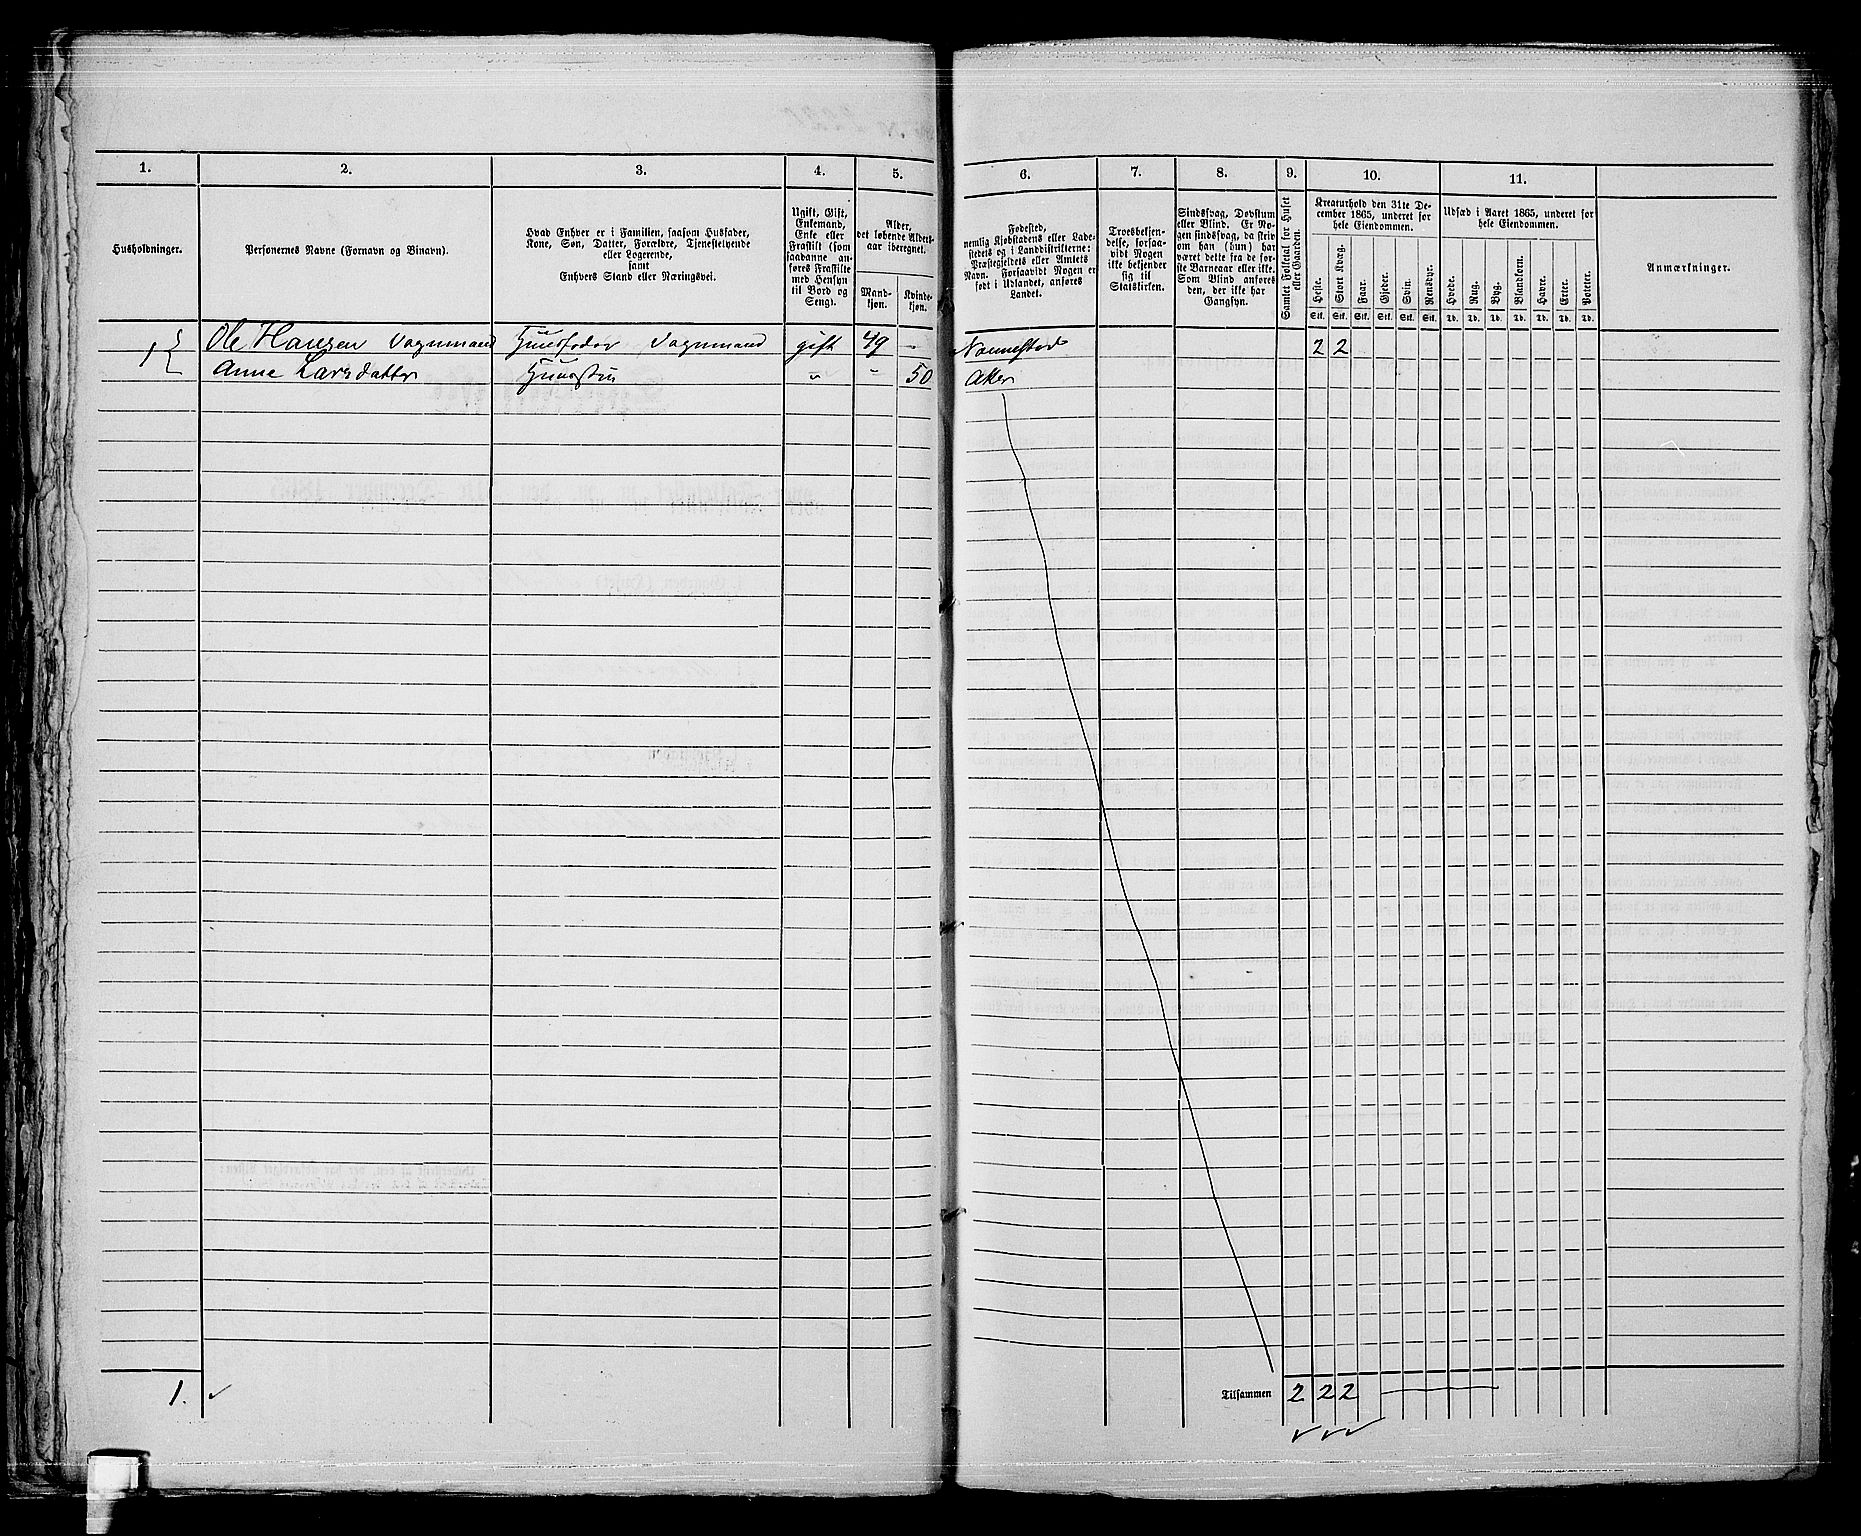 1. 2. 3. 4. 5. 6. 7. 8. 9. 10. 11.
Husholdninger.
Personernes Navne (Fornavn og Binavn).
Hvad Enhver er i Familien, saasom Husfader,
Kone, Søn, Datter, Forældre, Tjenestetyende
eller Logerende,
samt
Enhvers Stand eller Næringsvei.
Ugift, Gift,
Enkemand,
Enke eller
Fraskilt (som
saadanne an-
føres Fraskilte
med Hensyn
til Bord og
Seng).
Alder,
det løbende Alders-
aar iberegnet.
Mand-
kjøn.
Kvinde-
kjøn.
Fødested,
nemlig Kjøbstadens eller Lade-
stedets og i Landdistrikterne:
Præstegjeldets eller Amtets
Navn. Forsaavidt Nogen er
født i Udlandet, anføres
Landet.
Troesbekjen-
delse, forsaa-
vidt Nogen
ikke bekjender
sig til
Statskirken.
Sindssvag, Døvstum
eller Blind. Er No-
gen sindssvag, da skriv
om han (hun) har
været dette fra de før-
ste Barneaar eller ikke.
Som Blind anføres
den, der ikke har
Gangsyn.
Samlet Folketal for Huset
eller Gaarden.
Kreaturhold den 31te De-
cember 1865, underet for
hele Eiendommen.
Heste. Stort Kvæg. Faar. Gjeder. Svin. Rensdyr.
Stk. Stk. Stk. Stk. Stk. Stk.
Udsæd i Aaret 1865, underet for
hele Eiendommen.
Hvede. Rug. Byg. Blandkorn. Havre. Erter. Poteter.
Td. Td. Td. Td. Td. Td. Td.
Anmærkninger.
1 Ole Hansen Vognmand Huusfader, Vognmand gift 49 - Nannestad 2 2
Anne Larsdatter Huustru " - 50 Aker
1.
Tilsammen 2 2 2